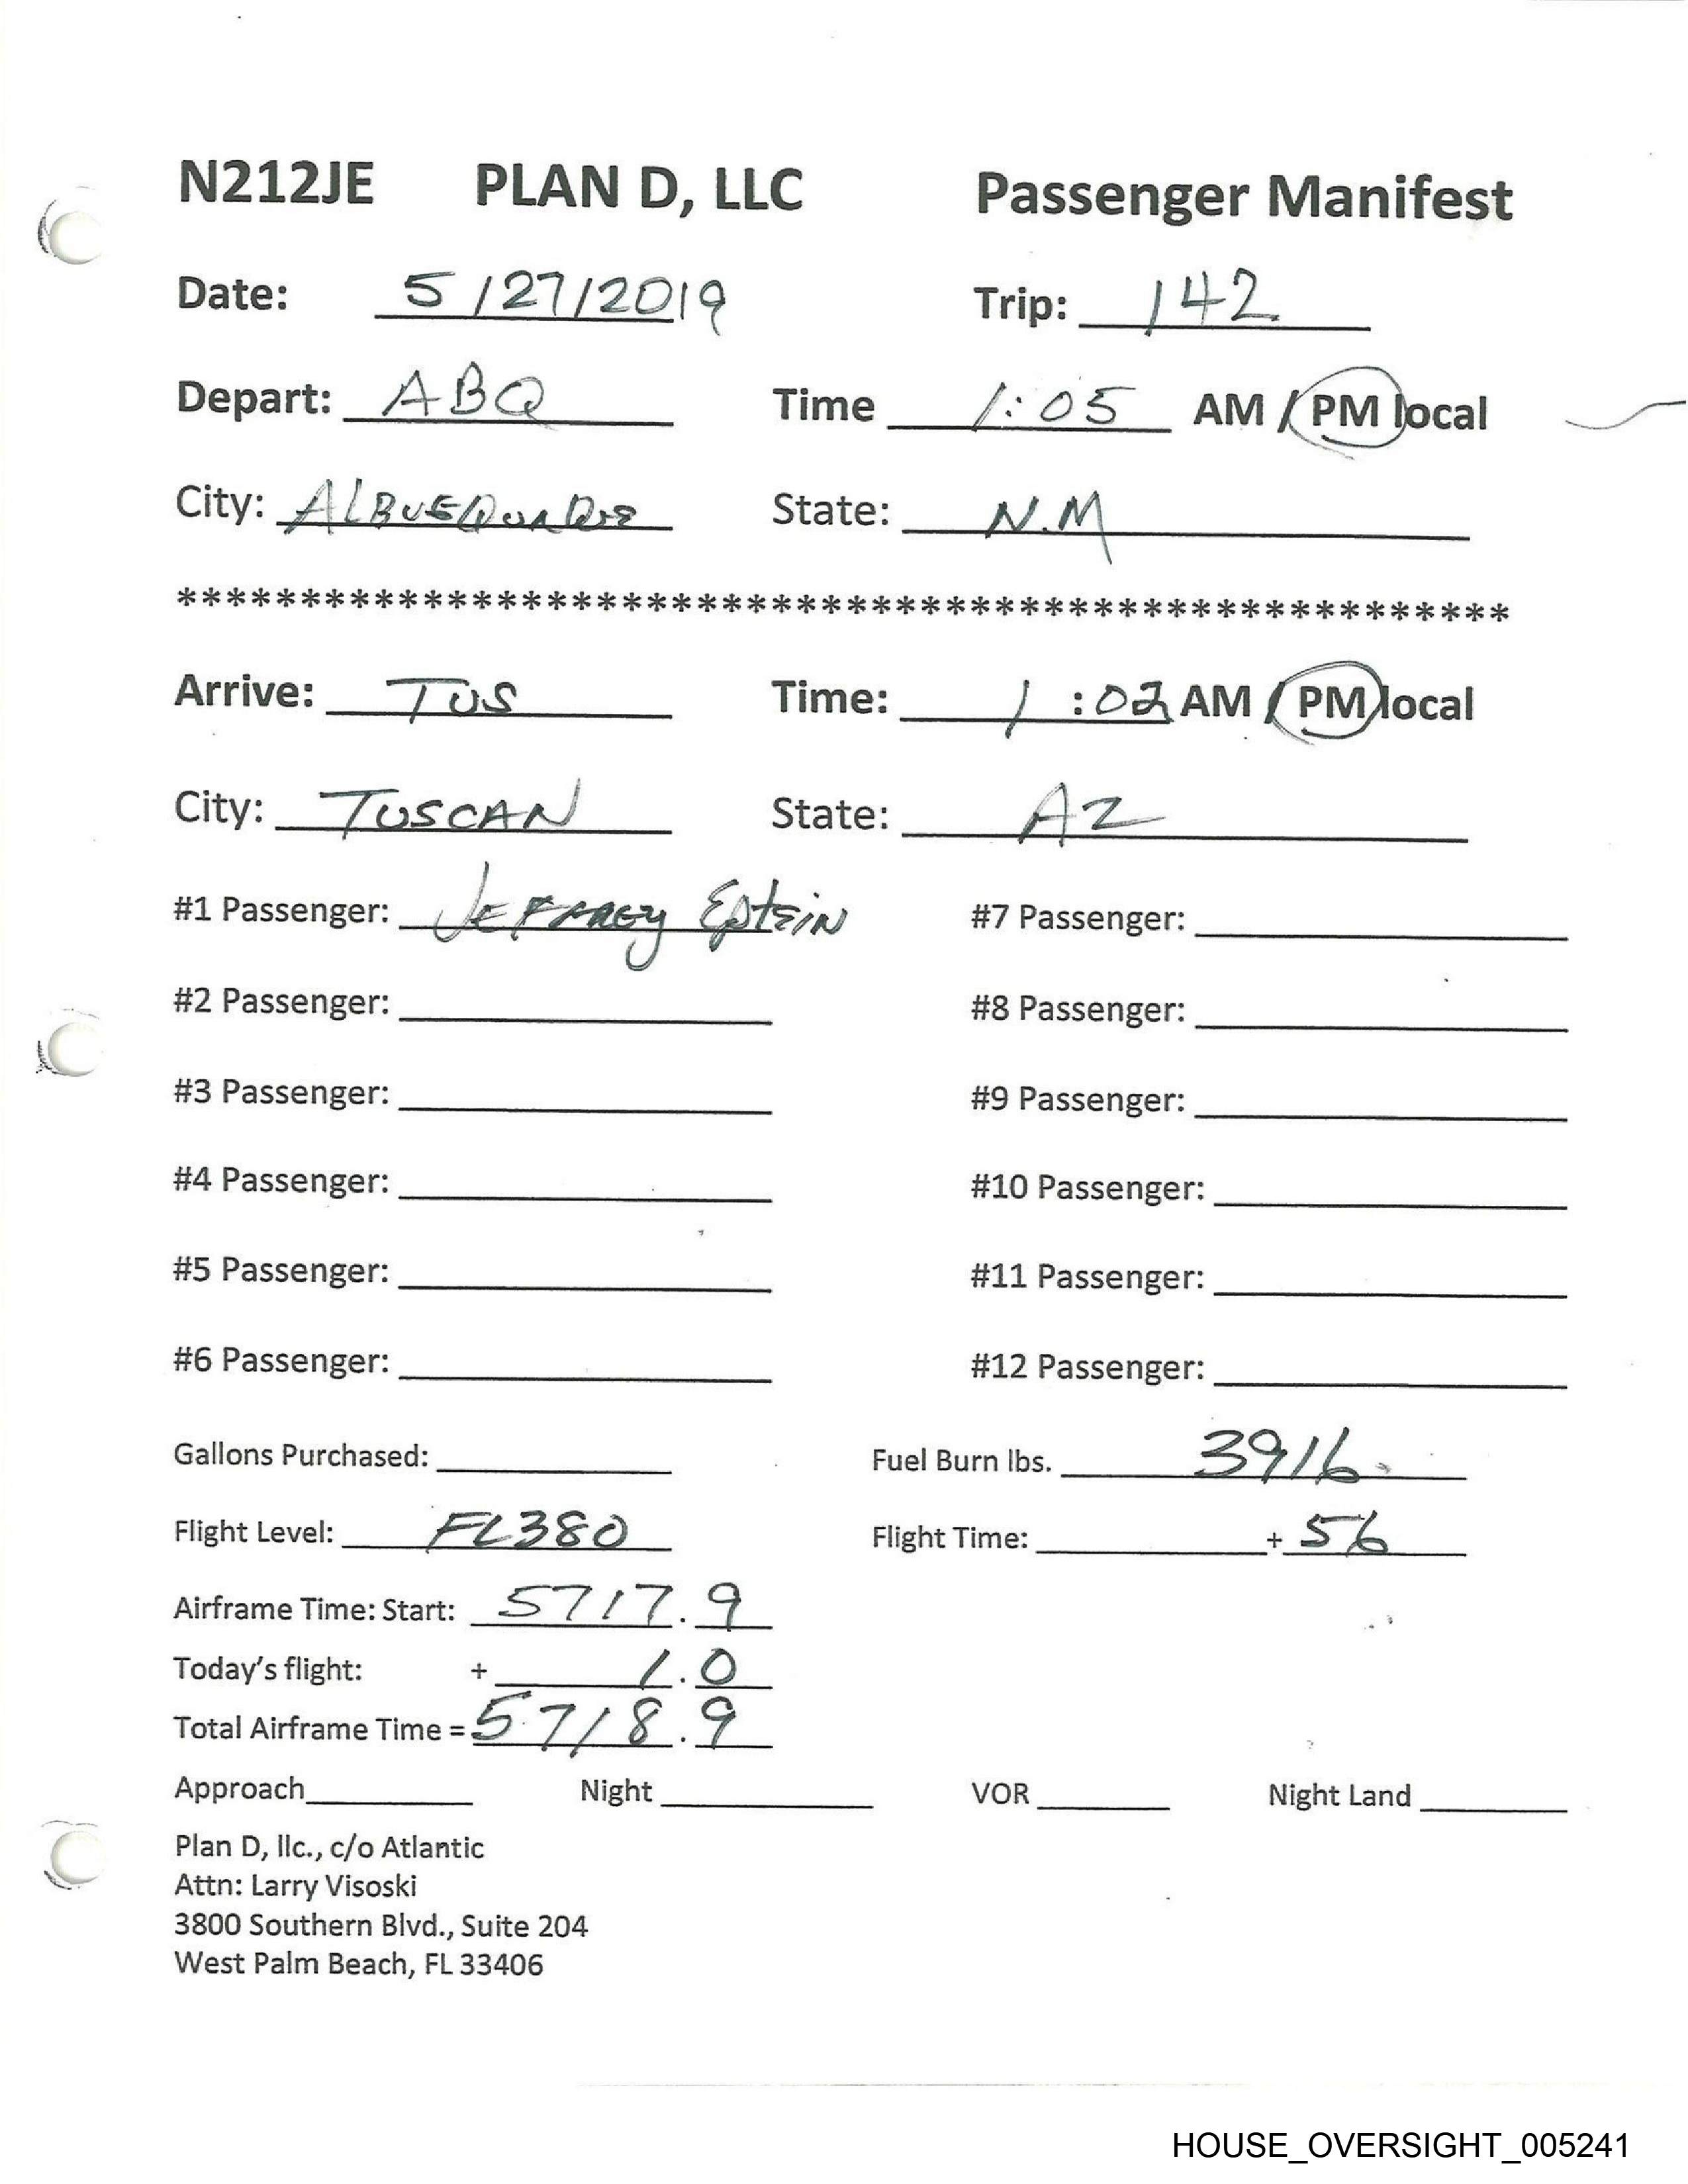 N212JE PLAN D, LLC Passenger Manifest
Date: 5/27/2019 Trip: 142
Depart: ABQ Time 1:05 AM / PM local
City: ALBUEQUARQUE State: N.M
******************************************************
Arrive: TUS Time: 1:02 AM / PM local
City: TUSCAN State: AZ
#1 Passenger: JEFFREY EpstEiN #7 Passenger:
#2 Passenger: #8 Passenger:
#3 Passenger: #9 Passenger:
#4 Passenger: #10 Passenger:
#5 Passenger: #11 Passenger:
#6 Passenger: #12 Passenger:
Gallons Purchased: Fuel Burn lbs. 3916.
Flight Level: FL380 Flight Time: + 56
Airframe Time: Start: 5717.9
Today's flight: + 1.0
Total Airframe Time = 5718.9
Approach Night VOR Night Land
Plan D, llc., c/o Atlantic
Attn: Larry Visoski
3800 Southern Blvd., Suite 204
West Palm Beach, FL 33406
HOUSE_OVERSIGHT_005241